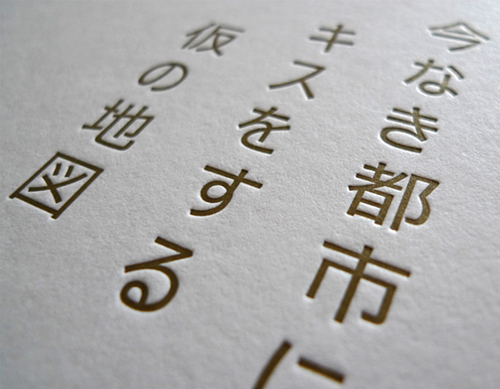 今なき都市に
キスをする
仮の地図